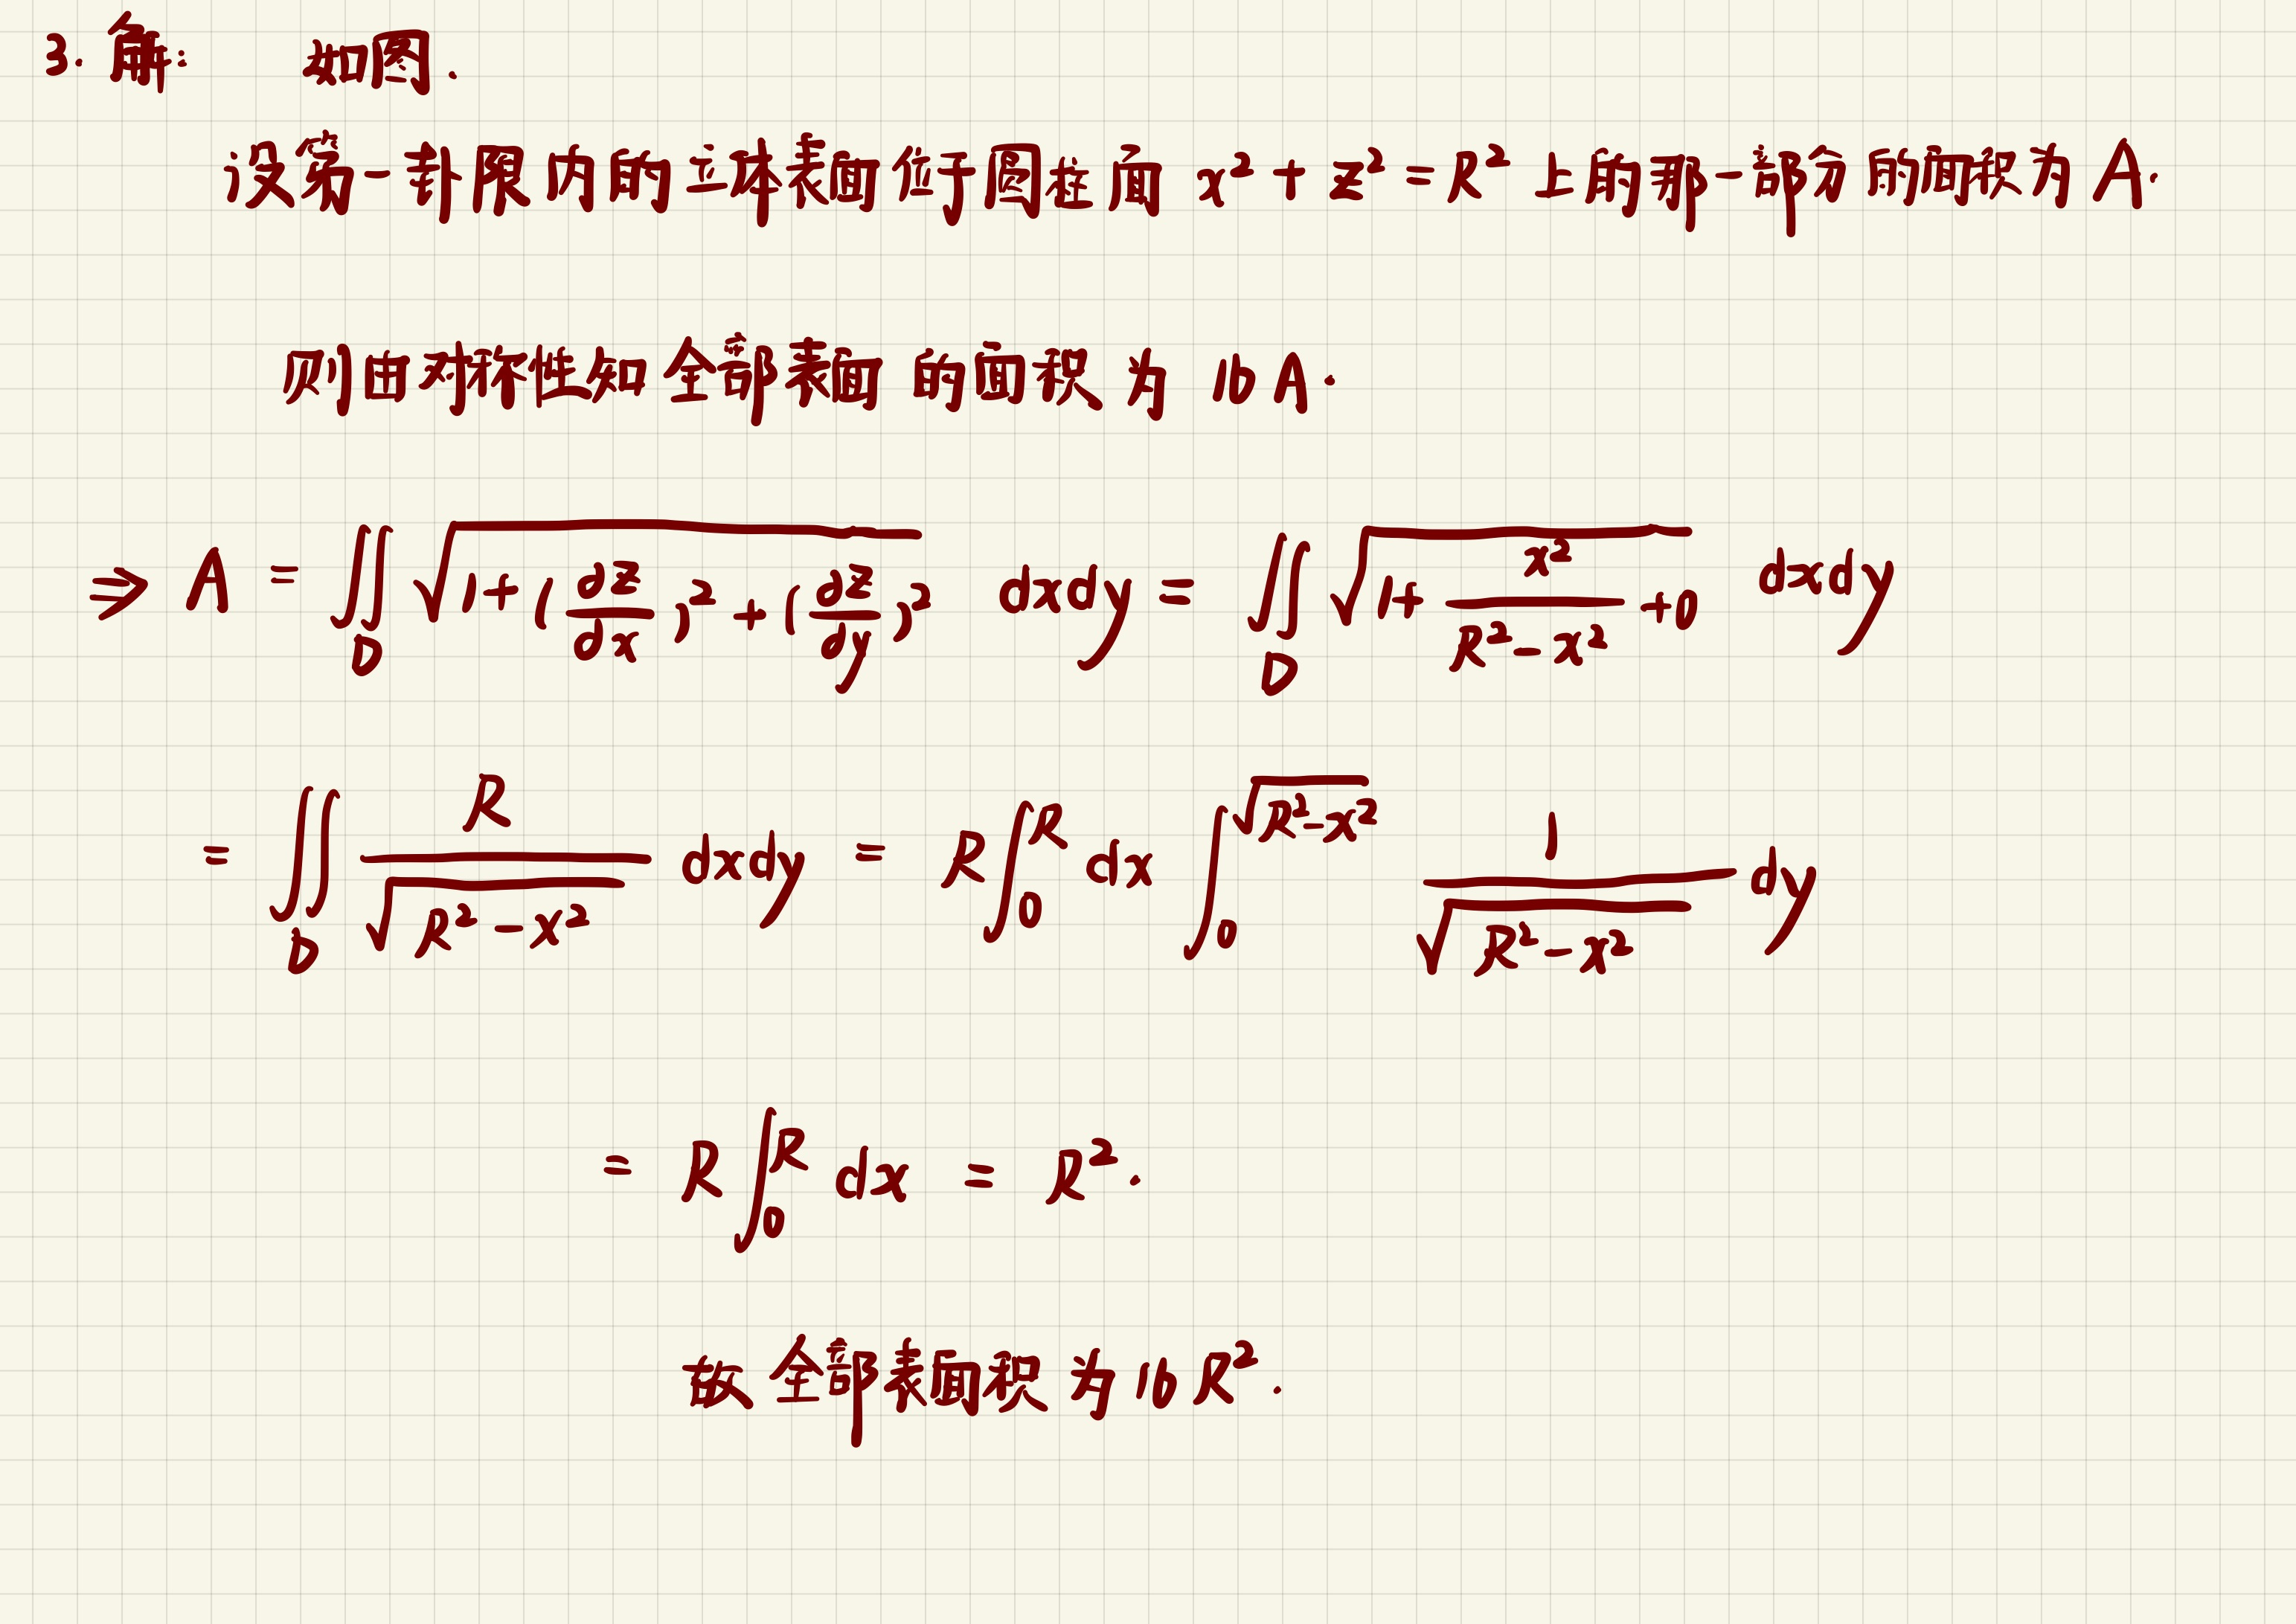 3. 解: 如图.
设第一卦限内的立体表面位于圆柱面 x² + z² = R² 上的那一部分的面积为 A.
则由对称性知全部表面的面积为 16A.
⇒ A = ∬_D √(1+(∂z/∂x)²+(∂z/∂y)²) dxdy = ∬_D √(1+x²/(R²-x²)+0) dxdy
= ∬_D R/√(R²-x²) dxdy = R∫₀^R dx ∫₀^√(R²-x²) 1/√(R²-x²) dy
= R∫₀^R dx = R².
故全部表面积为16R².